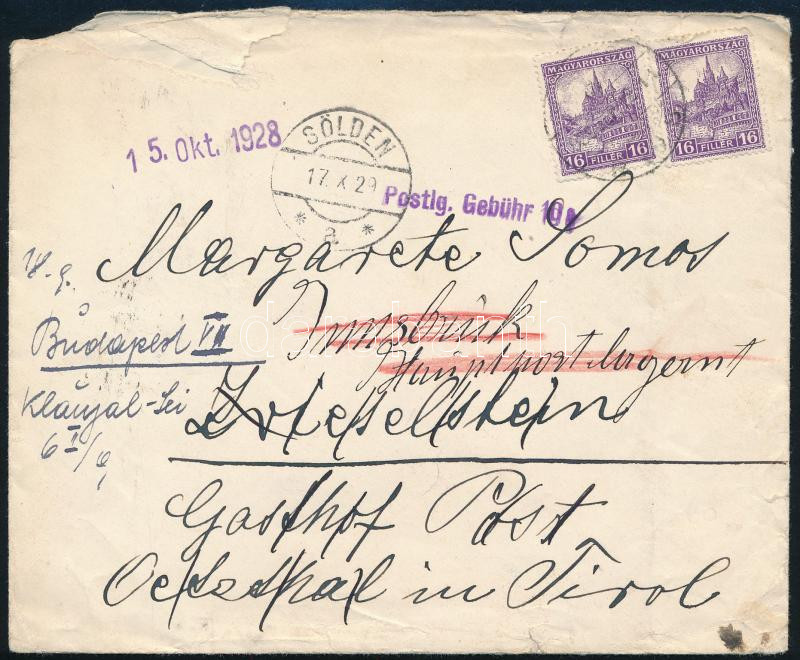 MAGYARORSZÁG
16 FILLÉR 16
MAGYARORSZÁG
16 FILLÉR 16
15. Okt. 1928
SÖLDEN
17.X.29
* a *
Postlg. Gebühr 10g
Margarete Somos
Innsbruck
Hauptpostlagernd
Zwieselstein
Gasthof Post
Oetzthal in Tirol
Budapest VII
Klauzál
6 I/9